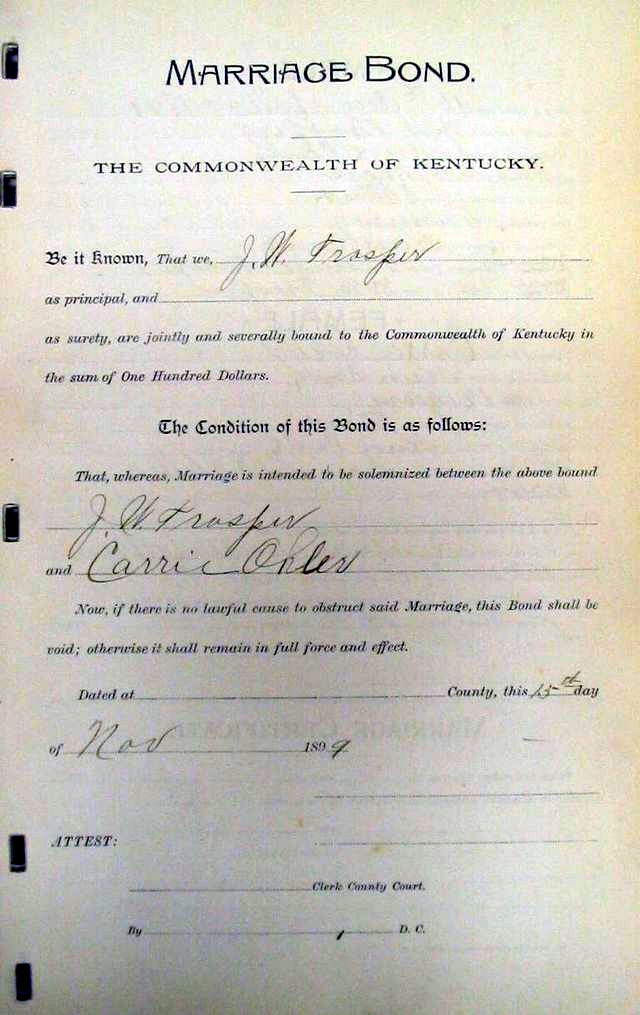 MARRIAGE BOND.
THE COMMONWEALTH OF KENTUCKY.
Be it Known, That we, J. W. Trosper
as principal, and
as surety, are jointly and severally bound to the Commonwealth of Kentucky in
the sum of One Hundred Dollars.
The Condition of this Bond is as follows:
That, whereas, Marriage is intended to be solemnized between the above bound
J. W. Trosper
and Carrie Ohler
Now, if there is no lawful cause to obstruct said Marriage, this Bond shall be
void; otherwise it shall remain in full force and effect.
Dated at County, this 15th day
of Nov 1899
ATTEST:
Clerk County Court.
By D. C.